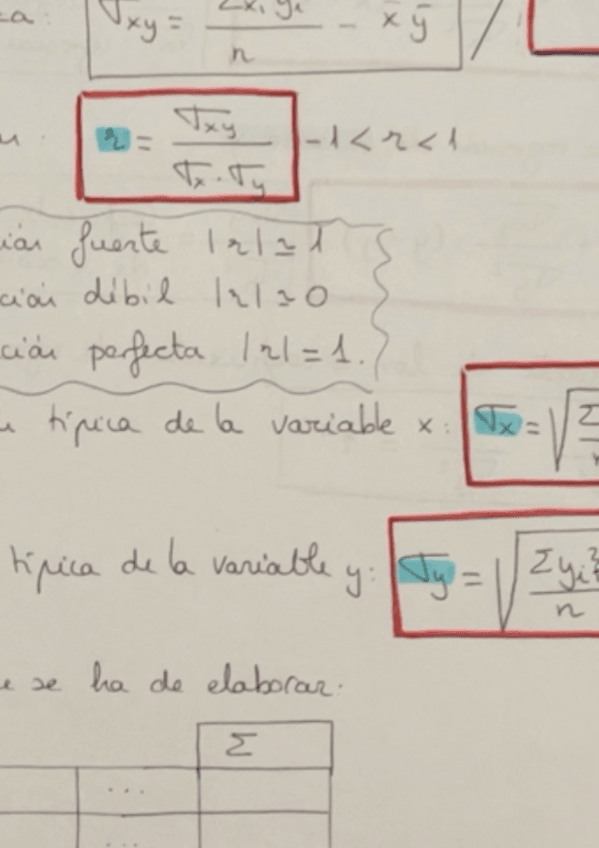 σxy = Σxi yi / n - x̄ ȳ /
r = σxy / σx · σy - 1 < r < 1
fuerte |r| ≃ 1
débil |r| ≃ 0
perfecta |r| = 1.
típica de la variable x: σx = √ Σ
típica de la variable y: σy = √ Σyi² / n
se ha de elaborar:
Σ
...
...